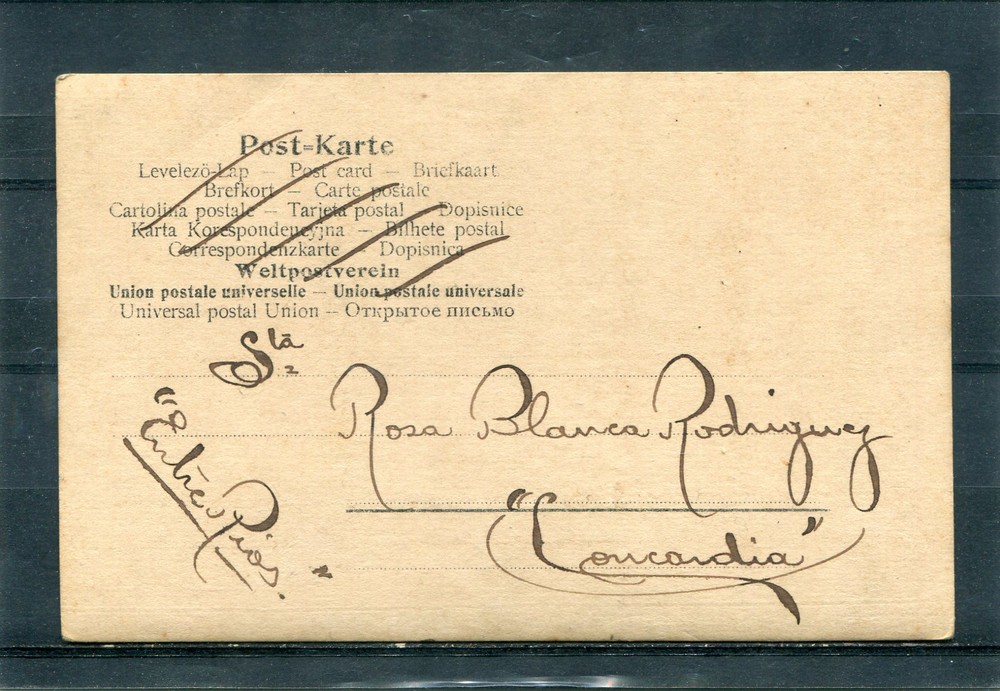 Post=Karte
Levelező-Lap – Post card – Briefkaart
Brefkort – Carte postale
Cartolina postale – Tarjeta postal Dopisnice
Karta Korespondencyjna – Bilhete postal
Correspondenzkarte Dopisnica
Weltpostverein
Union postale universelle – Union postale universale
Universal postal Union – Открытое письмо
Sta
Rosa Blanca Rodriguez
"Concordia"
"Entre Rios.